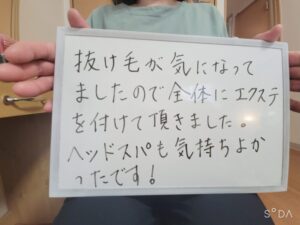 抜け毛が気になって
ましたので全体にエクステ
を付けて頂きました。
ヘッドスパも気持ちよか
ったです!
SODA